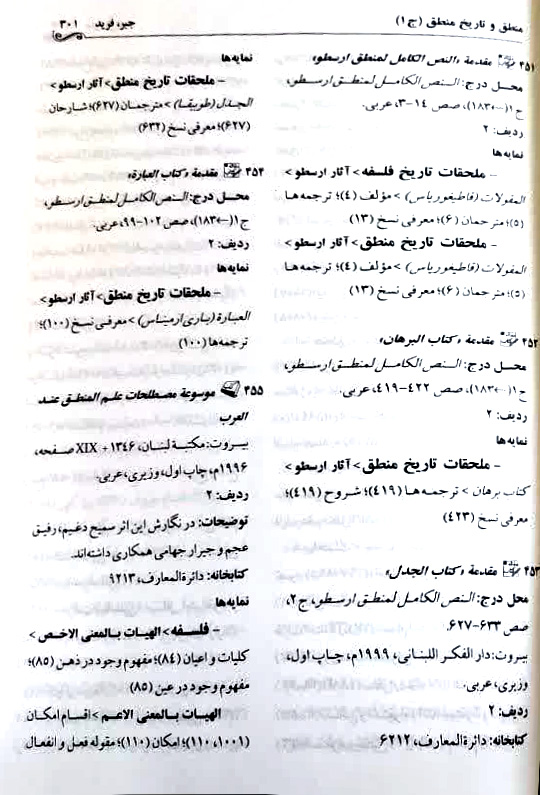 منطق و تاریخ منطق (ج۱)
جبر، فرید ۳۰۱
۴۵۱ مقدمة «النص الکامل لمنطق ارسطو»
محل درج: النص الکامل لمنطق ارسطو،
ج۱(←۱۸۳۰)، صص ۱۴-۳، عربی.
ردیف: ۲
نمایه‌ها
- ملحقات تاریخ فلسفه> آثار ارسطو>
المقولات (قاطیغوریاس) >مؤلف (۴)؛ ترجمه‌ها
(۵)؛ مترجمان (۶)؛ معرفی نسخ (۱۳)
- ملحقات تاریخ منطق> آثار ارسطو>
المقولات (قاطیغوریاس) >مؤلف (۴)؛ ترجمه‌ها
(۵)؛ مترجمان (۶)؛ معرفی نسخ (۱۳)
۴۵۲ مقدمة «کتاب البرهان»
محل درج: النص الکامل لمنطق ارسطو،
ج۱(←۱۸۳۰)، صص ۴۲۲-۴۱۹، عربی.
ردیف: ۲
نمایه‌ها
- ملحقات تاریخ منطق> آثار ارسطو>
کتاب برهان > ترجمه‌ها (۴۱۹)؛ شروح (۴۱۹)؛
معرفی نسخ (۴۲۳)
۴۵۳ مقدمة «کتاب الجدل»
محل درج: النص الکامل لمنطق ارسطو، ج۲،
صص ۶۳۳-۶۲۷.
بیروت: دار الفکر اللبنانی، ۱۹۹۹م، چاپ اول،
وزیری، عربی.
ردیف: ۲
کتابخانه: دائرةالمعارف، ۶۲۱۲
نمایه‌ها
- ملحقات تاریخ منطق> آثار ارسطو>
الجدل (طوبیقا) >مترجمان (۶۲۷)؛ شارحان
(۶۲۷)؛ معرفی نسخ (۶۳۲)
۴۵۴ مقدمة «کتاب العبارة»
محل درج: النص الکامل لمنطق ارسطو،
ج۱(←۱۸۳۰)، صص ۱۰۲-۹۹، عربی.
ردیف: ۲
نمایه‌ها
- ملحقات تاریخ منطق> آثار ارسطو>
العبارة (باری ارمیناس) >معرفی نسخ (۱۰۰)؛
ترجمه‌ها (۱۰۰)
۴۵۵ موسوعة مصطلحات علم المنطق عند
العرب
بیروت: مکتبة لبنان، ۱۳۴۶ + XIX صفحه،
۱۹۹۶م، چاپ اول، وزیری، عربی.
ردیف: ۲
توضیحات: در نگارش این اثر سمیح دغیم، رفیق
عجم و جیرار جهامی همکاری داشته‌اند.
کتابخانه: دائرةالمعارف، ۹۲۱۳
نمایه‌ها
- فلسفه> الهیات بالمعنی الاخص >
کلیات و اعیان (۸۴)؛ مفهوم وجود در ذهن (۸۵)؛
مفهوم وجود در عین (۸۵)
الهیات بالمعنی الاعم >اقسام امکان
(۱۰۰۱، ۱۱۰)؛ امکان (۱۱۰)؛ مقوله فعل و انفعال